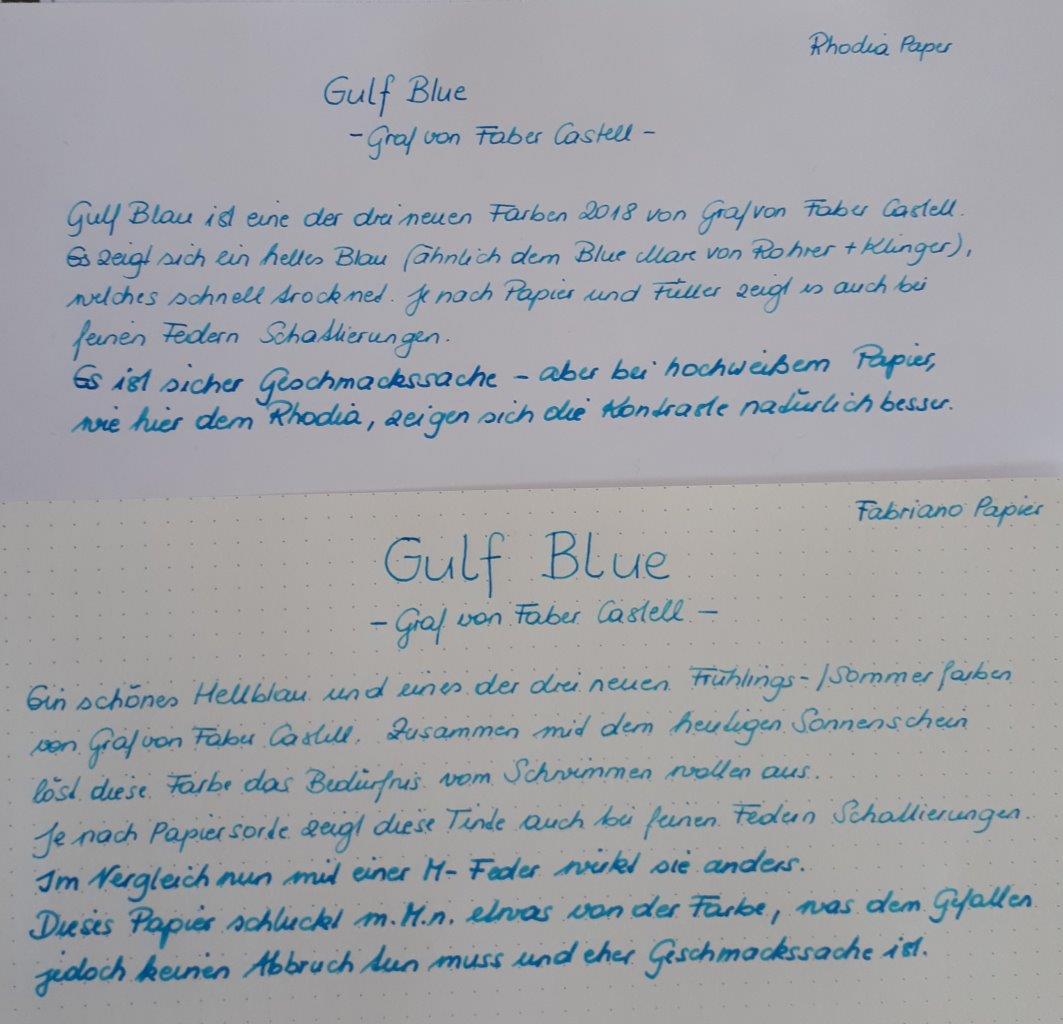 Rhodia Paper
Gulf Blue
- Graf von Faber Castell -
Gulf Blau ist eine der drei neuen Farben 2018 von Graf von Faber Castell.
Es zeigt sich ein helles Blau (ähnlich dem Blue Mare von Rohrer + Klinger),
welches schnell trocknet. Je nach Papier und Füller zeigt es auch bei
feinen Federn Schattierungen.
Es ist sicher Geschmackssache - aber bei hochweißem Papier,
wie hier dem Rhodia, zeigen sich die Kontraste natürlich besser.
Fabriano Papier
Gulf Blue
- Graf von Faber Castell -
Ein schönes Hellblau und eines der drei neuen Frühlings-/Sommerfarben
von Graf von Faber Castell. Zusammen mit dem heutigen Sonnenschein
löst diese Farbe das Bedürfnis vom Schwimmen wollen aus.
Je nach Papiersorte zeigt diese Tinte auch bei feinen Federn Schattierungen.
Im Vergleich nun mit einer M-Feder wirkt sie anders.
Dieses Papier schluckt m.M.n. etwas von der Farbe, was dem Gefallen
jedoch keinen Abbruch tun muss und eher Geschmackssache ist.